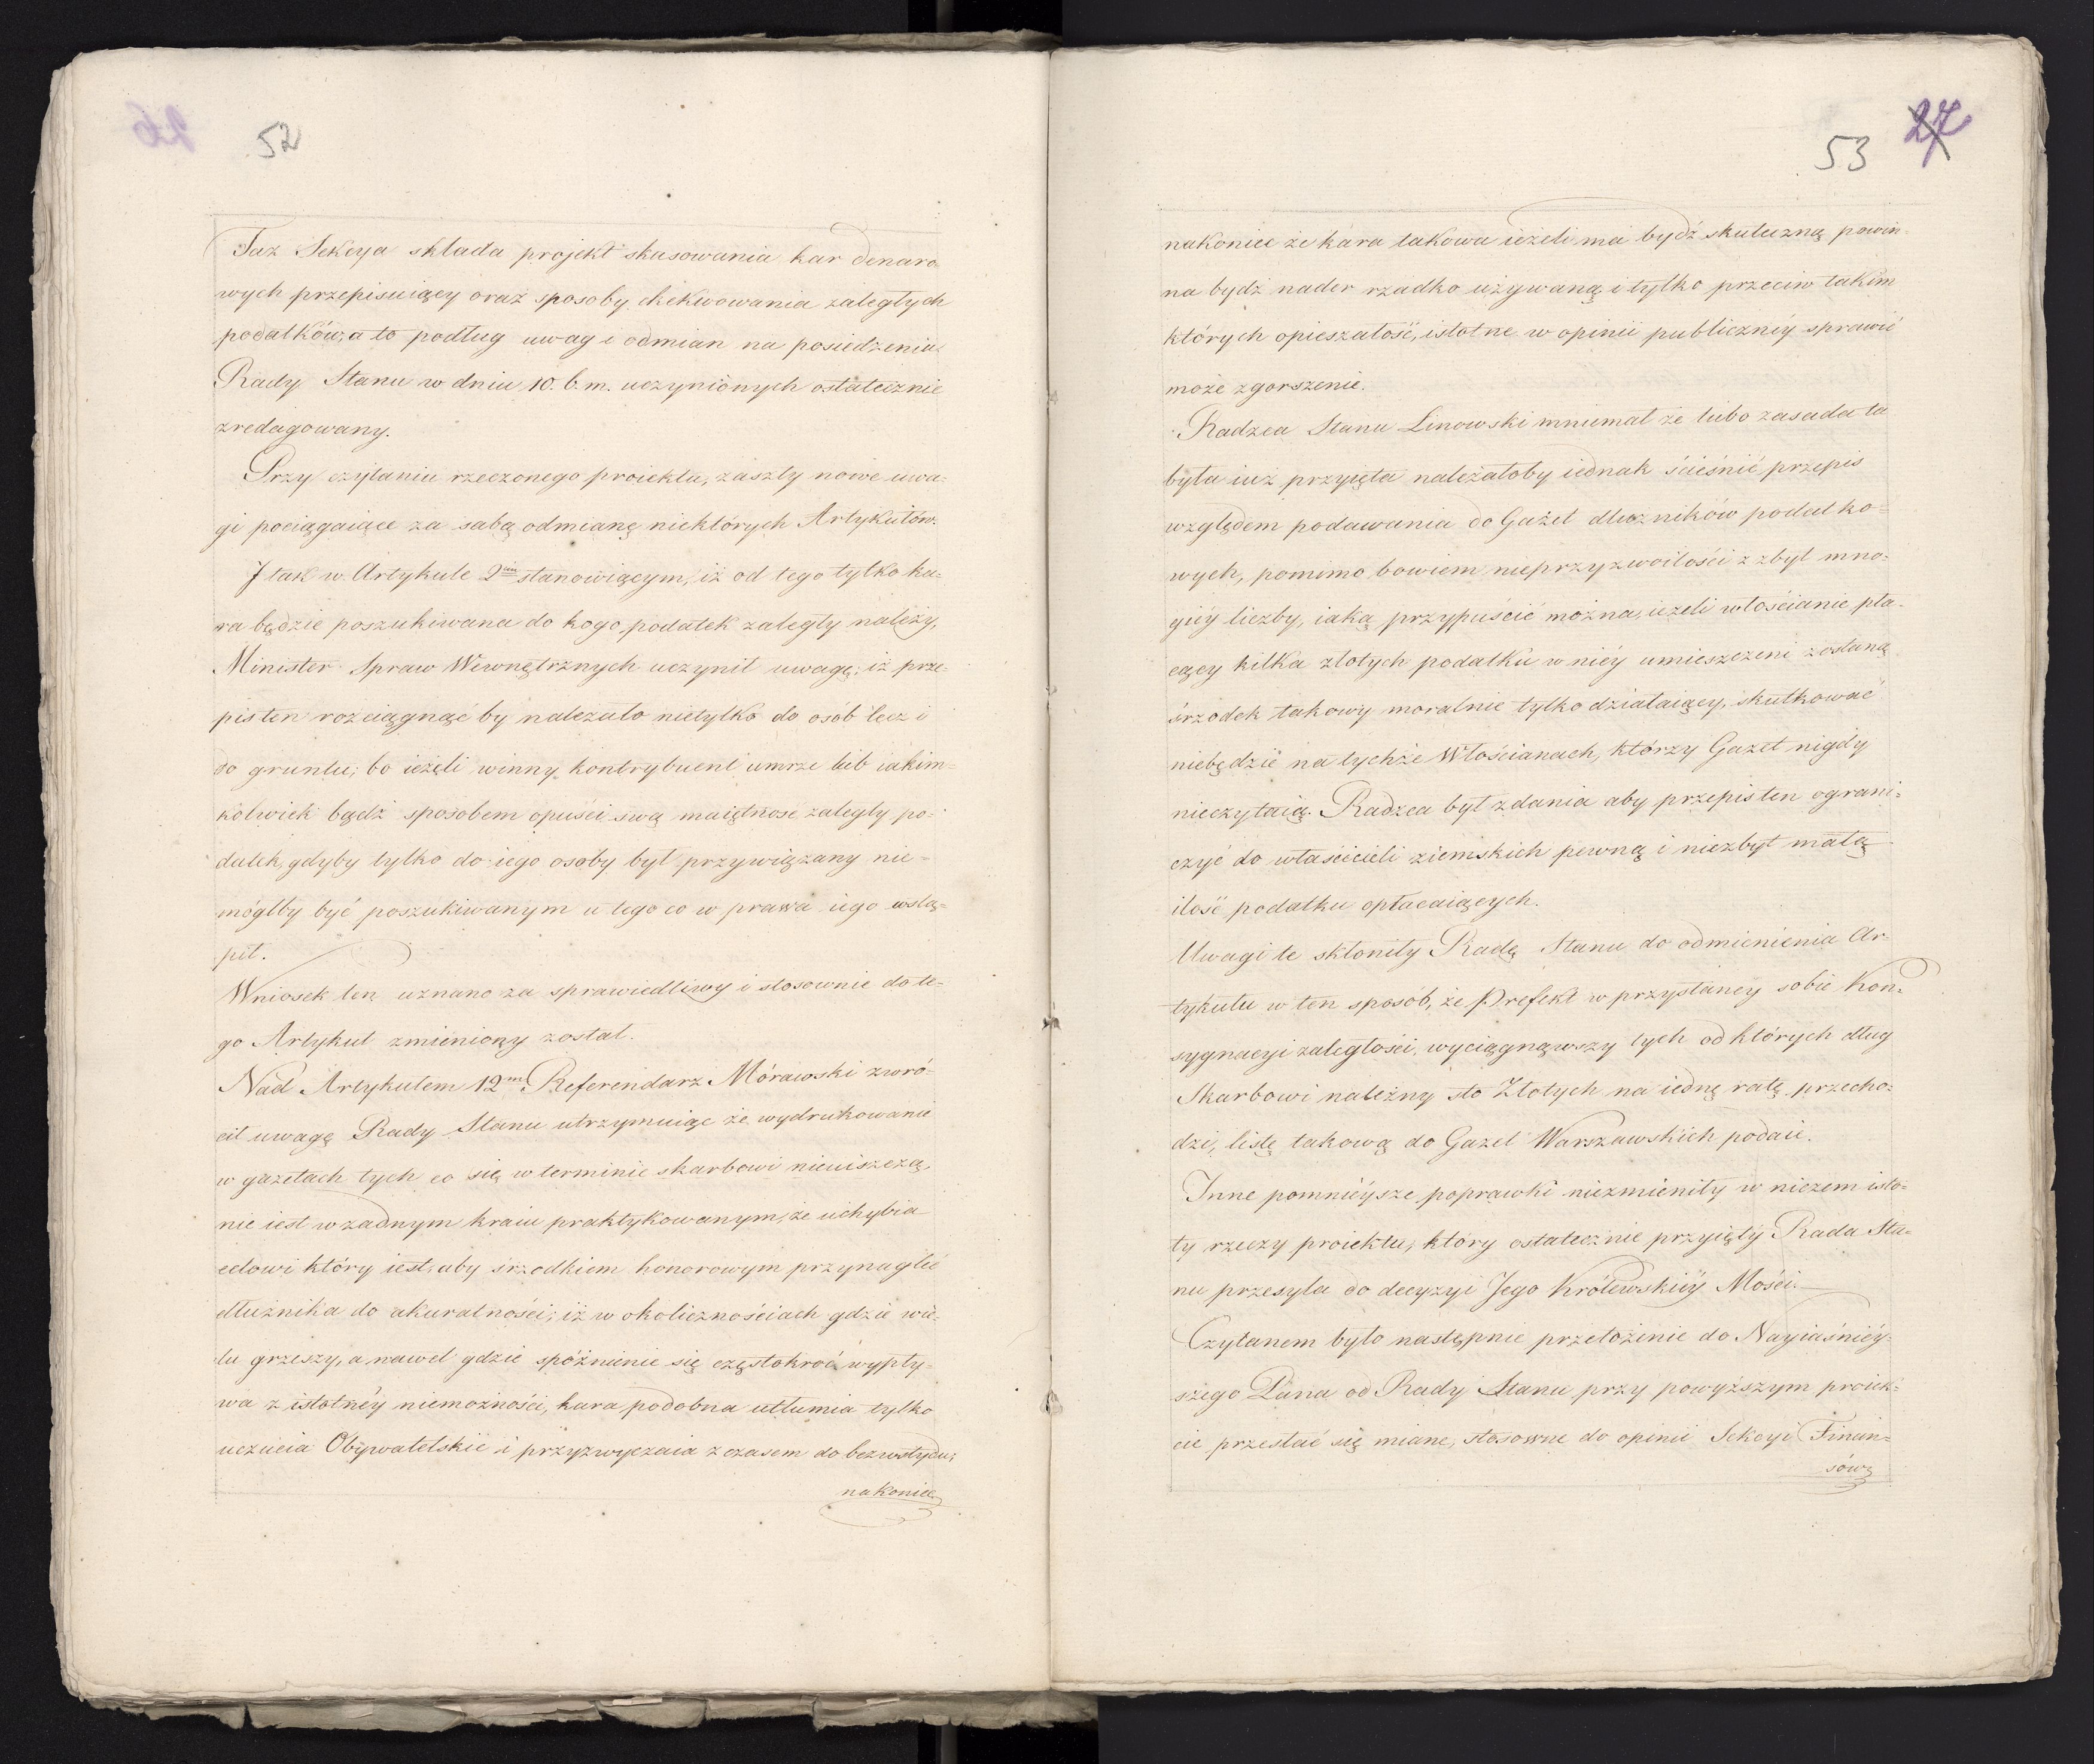 52
Taż Sekcya składa projekt skasowania kar denaro-
wych przepisuiący oraz sposoby exekwowania zaległych
podatków, a to podług uwag i odmian na posiedzeniu
Rady Stanu w dniu 10. b. m. uczynionych ostatecznie
zredagowany.
Przy czytaniu rzeczonego proiektu, zaszły nowe uwa-
gi pociągaiące za sabą odmianę niektórych Artykułów.
J tak w Artykule 2im stanowiącym, iż od tego tylko ka-
ra będzie poszukiwana do kogo podatek zaległy należy,
Minister Spraw Wewnętrznych uczynił uwagę; iż prze-
pis ten rozciągnąć by należało nietylko do osób lecz i
do gruntu; bo ieżeli winny kontrybuent umrze lub iakim-
kolwiek bądź sposobem opuści swą maiętnosc zaległy po-
datek gdyby tylko do iego osoby był przywiązany nie-
mógłby być poszukiwanym u tego co w prawa iego wstą-
pił.
Wniosek ten uznano za sprawiedliwy i stosownie do te-
go Artykuł zmieniony został.
Nad Artykułem 12m Referendarz Mórawski zwró-
cił uwagę Rady Stanu utrzymuiąc że wydrukowanie
w gazetach tych co się w terminie skarbowi nieuiszczą,
nie iest w żadnym kraiu praktykowanym, że uchybia
celowi który iest, aby śrzodkiem honorowym przynaglić
dłużnika do akuratności; iż w okolicznościach gdzie wie-
lu grzeszy, a nawet gdzie spóźnienie się częstokroć wypły-
wa z istotnéy niemożności, kara podobna utłumia tylko
uczucia Obywatelskie i przyzwyczaia z czasem do bezwstydu;
nakoniec
53 27
nakoniec że kara takowa ieżeli ma bydź skuteczną powin-
na bydź nader rzadko używaną i tylko przeciw takim
których opieszałość, istotne w opinii publicznéy sprawić
może zgorszenie.
Radzca Stanu Linowski mniemał że lubo zasada ta
była iuż przyięta należałoby iednak ścieśnić przepis
względem podawania do Gazet dłużników podatko-
wych, pomimo bowiem nieprzyzwoitości z zbyt mno-
giéy liczby, iaką przypuścić można, ieżeli włościanie pła-
cący kilka złotych podatku w niéy umieszczeni zostaną
śrzodek takowy moralnie tylko działaiący, skutkować
niebędzie na tychże Włościanach, którzy Gazet nigdy
nieczytaią. Radzca był zdania aby przepis ten ograni-
czyć do właścicieli ziemskich pewną i niezbyt małą
ilość podatku opłacaiących.
Uwagi te skłoniły Radę Stanu do odmienienia Ar-
tykułu w ten sposób, że Prefekt w przysłaney sobie Kon-
sygnacyi zaległości, wyciągnąwszy tych od których dług
Skarbowi należny sto Złotych na iednę ratę przecho-
dzi, listę takową do Gazet Warszawskich podaie.
Inne pomnieysze poprawki niezmieniły w niczem isto-
ty rzeczy proiektu, który ostatecznie przyięty Rada Sta-
nu przesyła do decyzyi Jego Królewskiéy Mości.
Czytanem było następnie przełożenie do Nayiaśniéy-
szego Pana od Rady Stanu przy powyższym proiek-
cie przesłać się miane, stosowne do opinii Sekcyi Finan-
sów